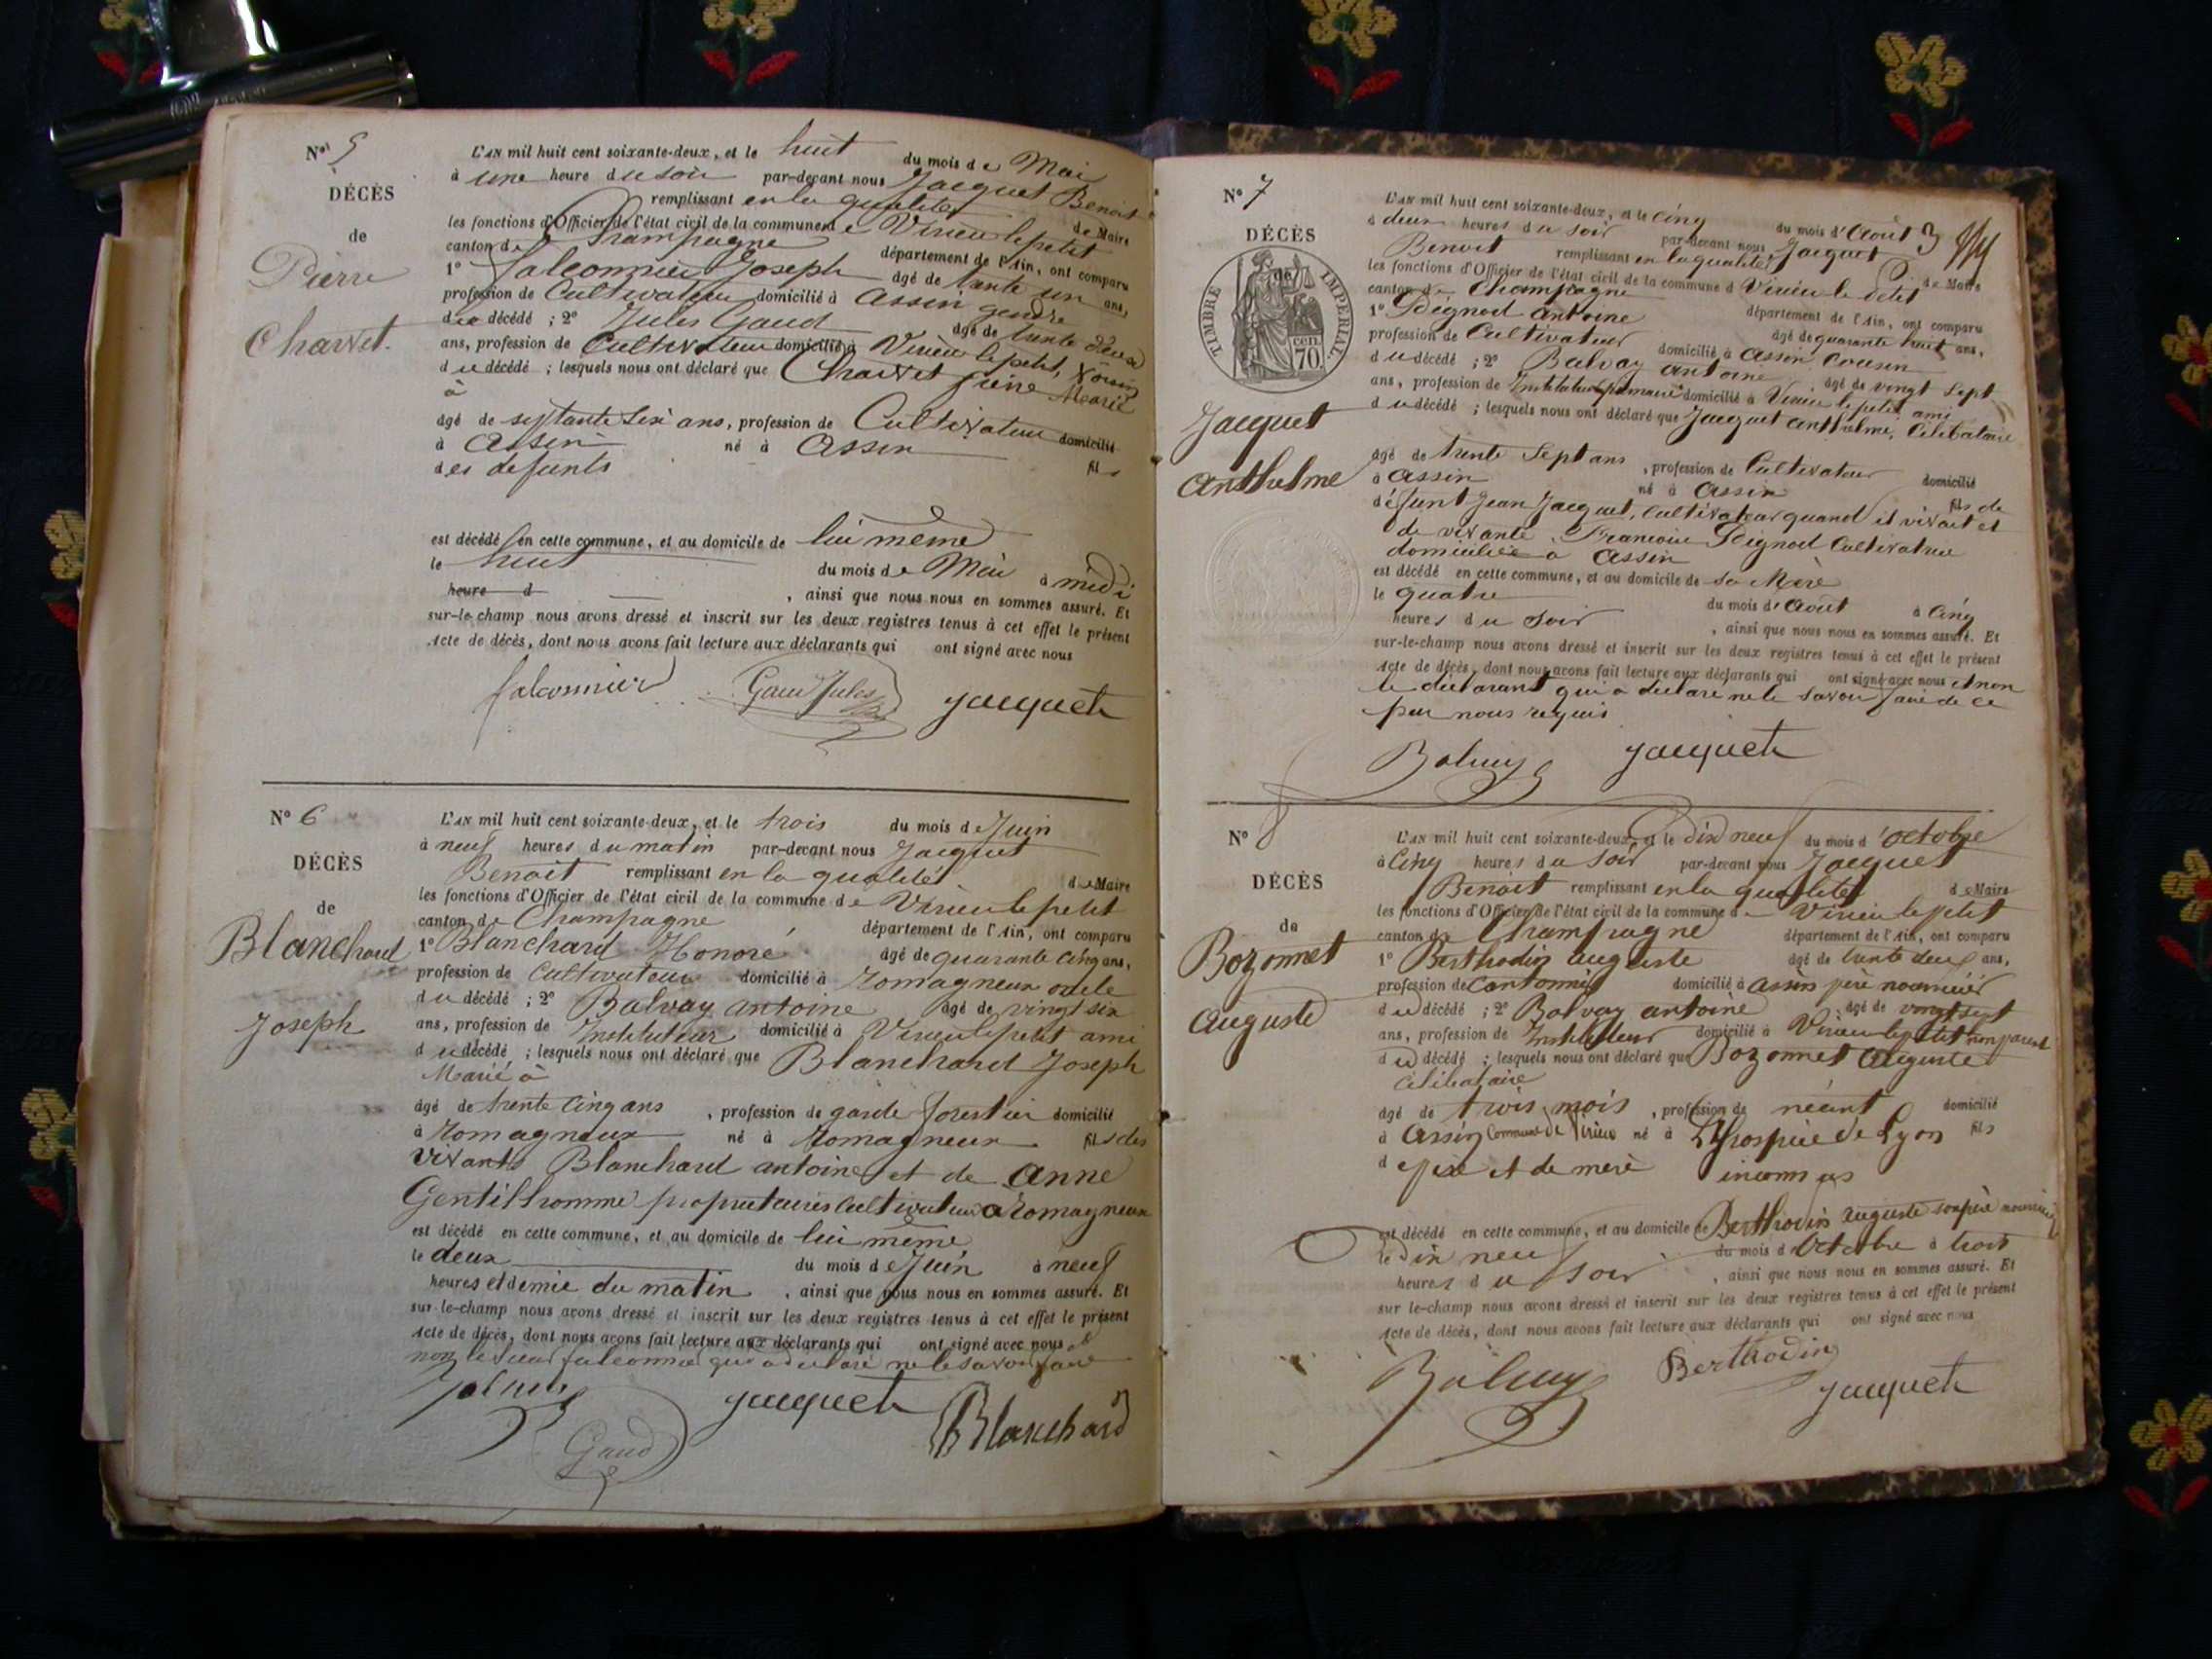 N° 5
DÉCÈS
de
Pierre
Charvet
L'AN mil huit cent soixante-deux, et le huit du mois de Mai
à une heure du soir par-devant nous Jacquet Benoit
remplissant en la qualité de Maire
les fonctions d'Officier de l'état civil de la commune de Virieu le petit
canton de Champagne département de l'Ain, ont comparu
1° Falconnier Joseph âgé de trente un ans,
profession de Cultivateur domicilié à Assin gendre
du décédé ; 2° Jules Gaud âgé de trente deux
ans, profession de Cultivateur domicilié à Virieu le petit, voisin
du décédé ; lesquels nous ont déclaré que Charvet Marié
à
âgé de septante six ans, profession de Cultivateur domicilié
à Assin né à Assin fils
des defunts
est décédé en cette commune, et au domicile de lui même
le huit du mois de Mai à midi
heure d , ainsi que nous nous en sommes assuré. Et
sur-le-champ nous avons dressé et inscrit sur les deux registres tenus à cet effet le présent
Acte de décès, dont nous avons fait lecture aux déclarants qui ont signé avec nous
falconnier Gaud Jules Jacquet
N° 6
DÉCÈS
de
Blanchard
Joseph
L'AN mil huit cent soixante-deux, et le trois du mois de Juin
à neuf heures du matin par-devant nous Jacquet
Benoit remplissant en la qualité de Maire
les fonctions d'Officier de l'état civil de la commune de Virieu le petit
canton de Champagne département de l'Ain, ont comparu
1° Blanchard Honoré âgé de quarante cinq ans,
profession de Cultivateur domicilié à Romagneux oncle
du décédé ; 2° Balvay antoine âgé de vingt six
ans, profession de Instituteur domicilié à Virieu le petit ami
du décédé ; lesquels nous ont déclaré que Blanchard Joseph
Marié à
âgé de trente cinq ans , profession de garde forestier domicilié
à Romagneux né à Romagneux fils des
vivants Blanchard antoine et de Anne
Gentilhomme propriétaires Cultivateurs a Romagneux
est décédé en cette commune, et au domicile de lui même
le deux du mois de Juin à neuf
heures et demie du matin , ainsi que nous nous en sommes assuré. Et
sur-le-champ nous avons dressé et inscrit sur les deux registres tenus à cet effet le présent
Acte de décès, dont nous avons fait lecture aux déclarants qui ont signé avec nous et
non le Sieur falconnier qui a déclaré ne le savoir faire
Jacquet Blanchard
Gaud
N° 7
DÉCÈS
de
TIMBRE IMPERIAL
70 cen.
Jacquet
Anthelme
L'AN mil huit cent soixante-deux, et le cinq du mois d'Août 3
à deux heures du soir par-devant nous Jacquet
Benoit remplissant en la qualité de Maire
les fonctions d'Officier de l'état civil de la commune d Virieu le Petit
canton de Champagne département de l'Ain, ont comparu
1° Peignod Antoine âgé de quarante huit ans,
profession de Cultivateur domicilié à Assin Cousin
du décédé ; 2° Balvay antoine , âgé de vingt sept
ans, profession de Instituteur primaire domicilié à Virieu le petit ami
du décédé ; lesquels nous ont déclaré que Jacquet Anthelme, Célibataire
âgé de trente Sept ans , profession de Cultivateur domicilié
à Assin né à Assin fils de
défunt Jean Jacquet, Cultivateur quand il vivait et
de vivante Francoise Peignod Cultivatrice
domiciliée a Assin
est décédé en cette commune, et au domicile de sa Mère
le quatre du mois d'Août à Cinq
heures du soir , ainsi que nous nous en sommes assuré. Et
sur-le-champ nous avons dressé et inscrit sur les deux registres tenus à cet effet le présent
Acte de décès, dont nous avons fait lecture aux déclarants qui ont signé avec nous et non
le déclarant qui a déclaré ne le savoir faire de ce
par nous requis
Balvay Jacquet
N° 8
DÉCÈS
de
Bozonnet
Auguste
L'AN mil huit cent soixante-deux, et le Dix neuf du mois d'octobre
à Cinq heures du Soir par-devant nous Jacquet
Benoit remplissant en la qualité de Maire
les fonctions d'Officier de l'état civil de la commune de Virieu le petit
canton de Champagne département de l'Ain, ont comparu
1° Berthodin auguste âgé de trente ans,
profession de Cantonnier domicilié à Assin père nourricier
du décédé ; 2° Balvay antoine , âgé de vingt sept
ans, profession de Instituteur domicilié à Virieu le petit non parent
du décédé ; lesquels nous ont déclaré que Bozonnet Auguste
Célibataire
âgé de trois mois , profession de néant domicilié
à Assin Commune de Virieu né à L'hospice de Lyon fils
de père et de mere inconnus
est décédé en cette commune, et au domicile de Berthodin auguste son père nourricier
le Dix neuf du mois d'Octobre à trois
heures du soir , ainsi que nous nous en sommes assuré. Et
sur-le-champ nous avons dressé et inscrit sur les deux registres tenus à cet effet le présent
Acte de décès, dont nous avons fait lecture aux déclarants qui ont signé avec nous
Balvay Berthodin Jacquet